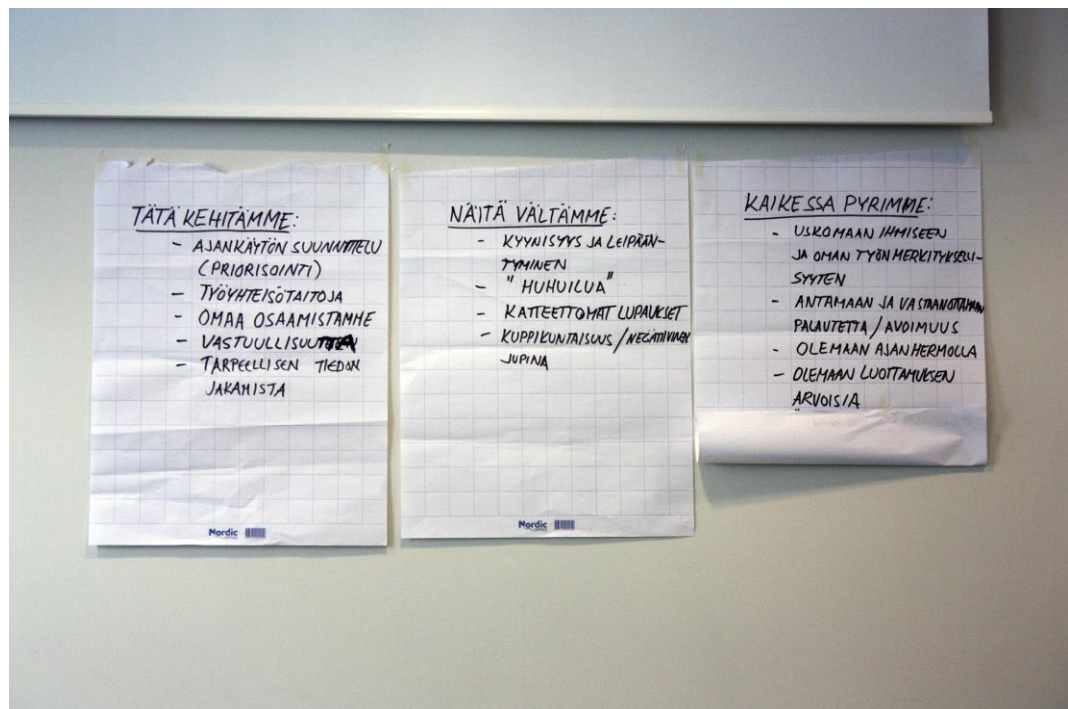 TÄTÄ KEHITÄMME:
- AJANKÄYTÖN SUUNNITTELU
(PRIORISOINTI)
- TYÖYHTEISÖTAITOJA
- OMAA OSAAMISTAMME
- VASTUULLISUUTTA
- TARPEELLISEN TIEDON
JAKAMISTA
Nordic
NÄITÄ VÄLTÄMME:
- KYYNISYYS JA LEIPÄÄN-
TYMINEN
- "HUHUILUA"
- KATTEETTOMAT LUPAUKSET
- KUPPIKUNTAISUUS / NEGATIIVINEN
JUPINA
Nordic
KAIKESSA PYRIMME:
- USKOMAAN IHMISEEN
JA OMAN TYÖN MERKITYKSELLI-
SYYTEN
- ANTAMAAN JA VASTAANOTTAMAAN
PALAUTETTA / AVOIMUUS
- OLEMAAN AJAN HERMOLLA
- OLEMAAN LUOTTAMUKSEN
ARVOISIA